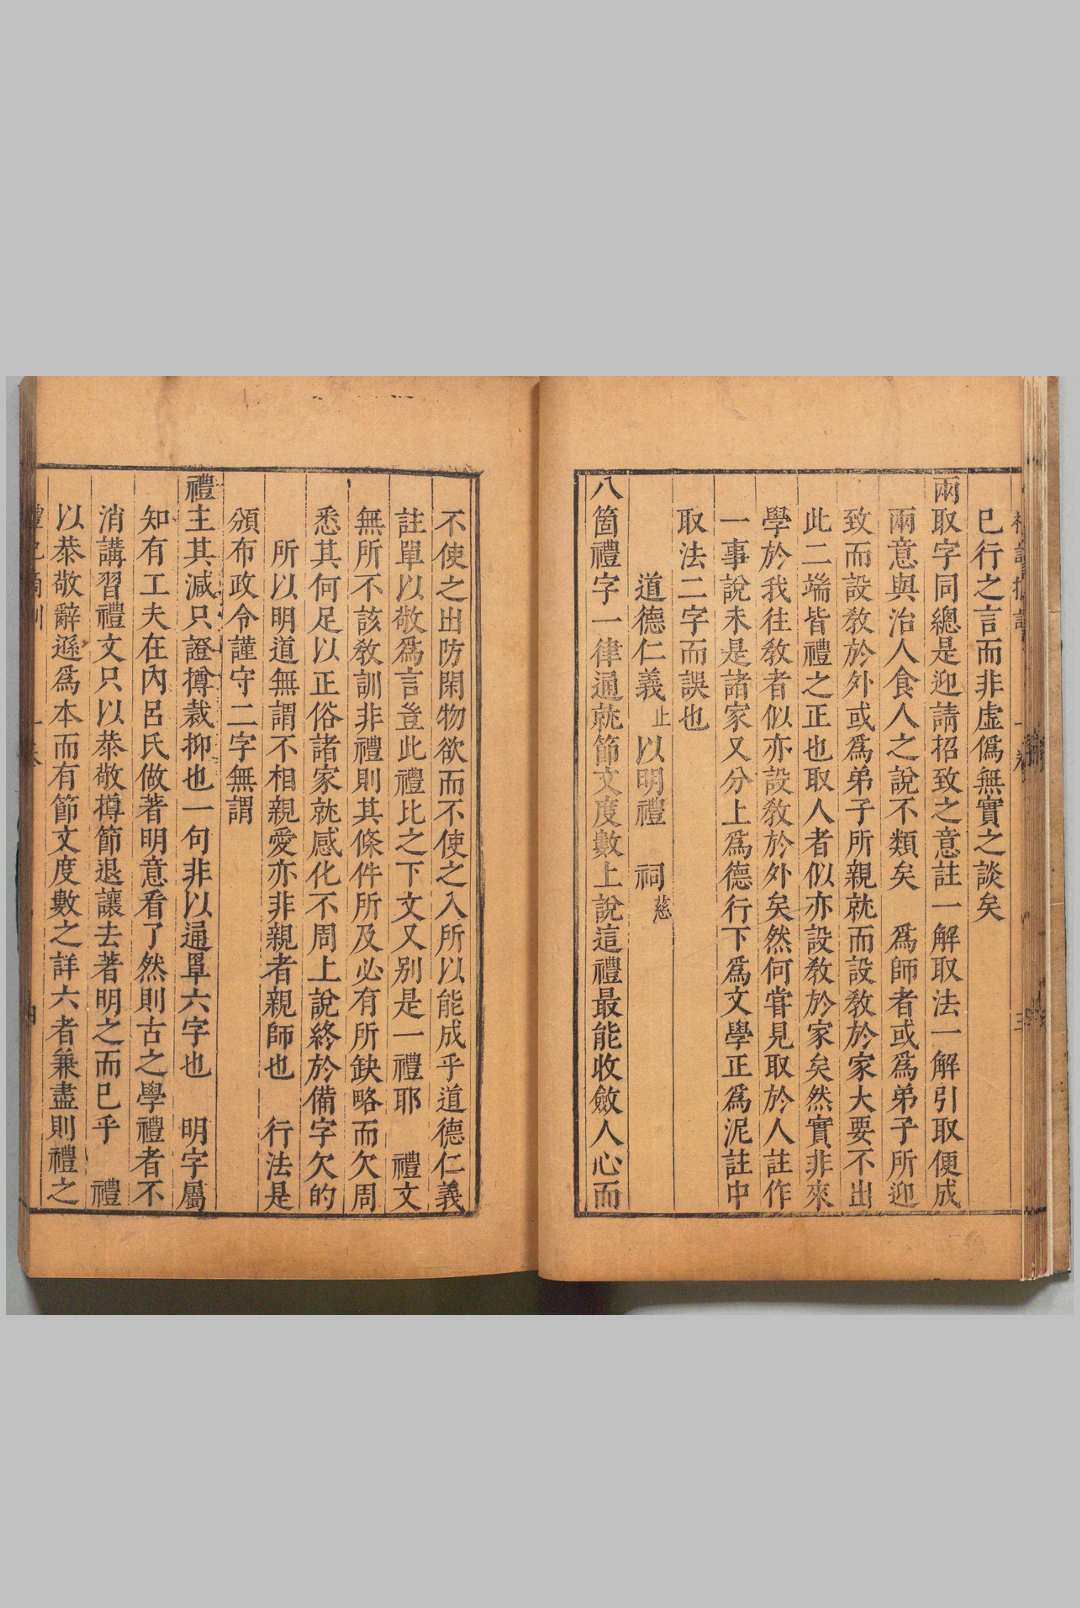 已行之言而非虛僞無實之談矣
兩取字同總是迎請招致之意註一解取法一解引取便成
兩意與治人食人之說不類矣　爲師者或爲弟子所迎
致而設教於外或爲弟子所親就而設教於家大要不出
此二端皆禮之正也取人者似亦設教於家矣然實非來
學於我往教者似亦設教於外矣然何嘗見取於人註作
一事說未是諸家又分上爲德行下爲文學正爲泥註中
取法二字而誤也
道德仁義止以明禮　祠慈
八箇禮字一律通就節文度數上說這禮最能收斂人心而
不使之出防閑物欲而不使之入所以能成乎道德仁義
註單以敬爲言豈此禮比之下文又別是一禮耶　禮文
無所不該教訓非禮則其條件所及必有所缺略而欠周
悉其何足以正俗諸家就感化不周上說終於備字欠的
所以明道無謂不相親愛亦非親者親師也　行法是
頒布政令謹守二字無謂
禮主其減只證撙裁抑也一句非以通單六字也　明字屬
知有工夫在內呂氏做著明意看了然則古之學禮者不
消講習禮文只以恭敬撙節退讓去著明之而已乎　禮
以恭敬辭遜爲本而有節文度數之詳六者兼盡則禮之